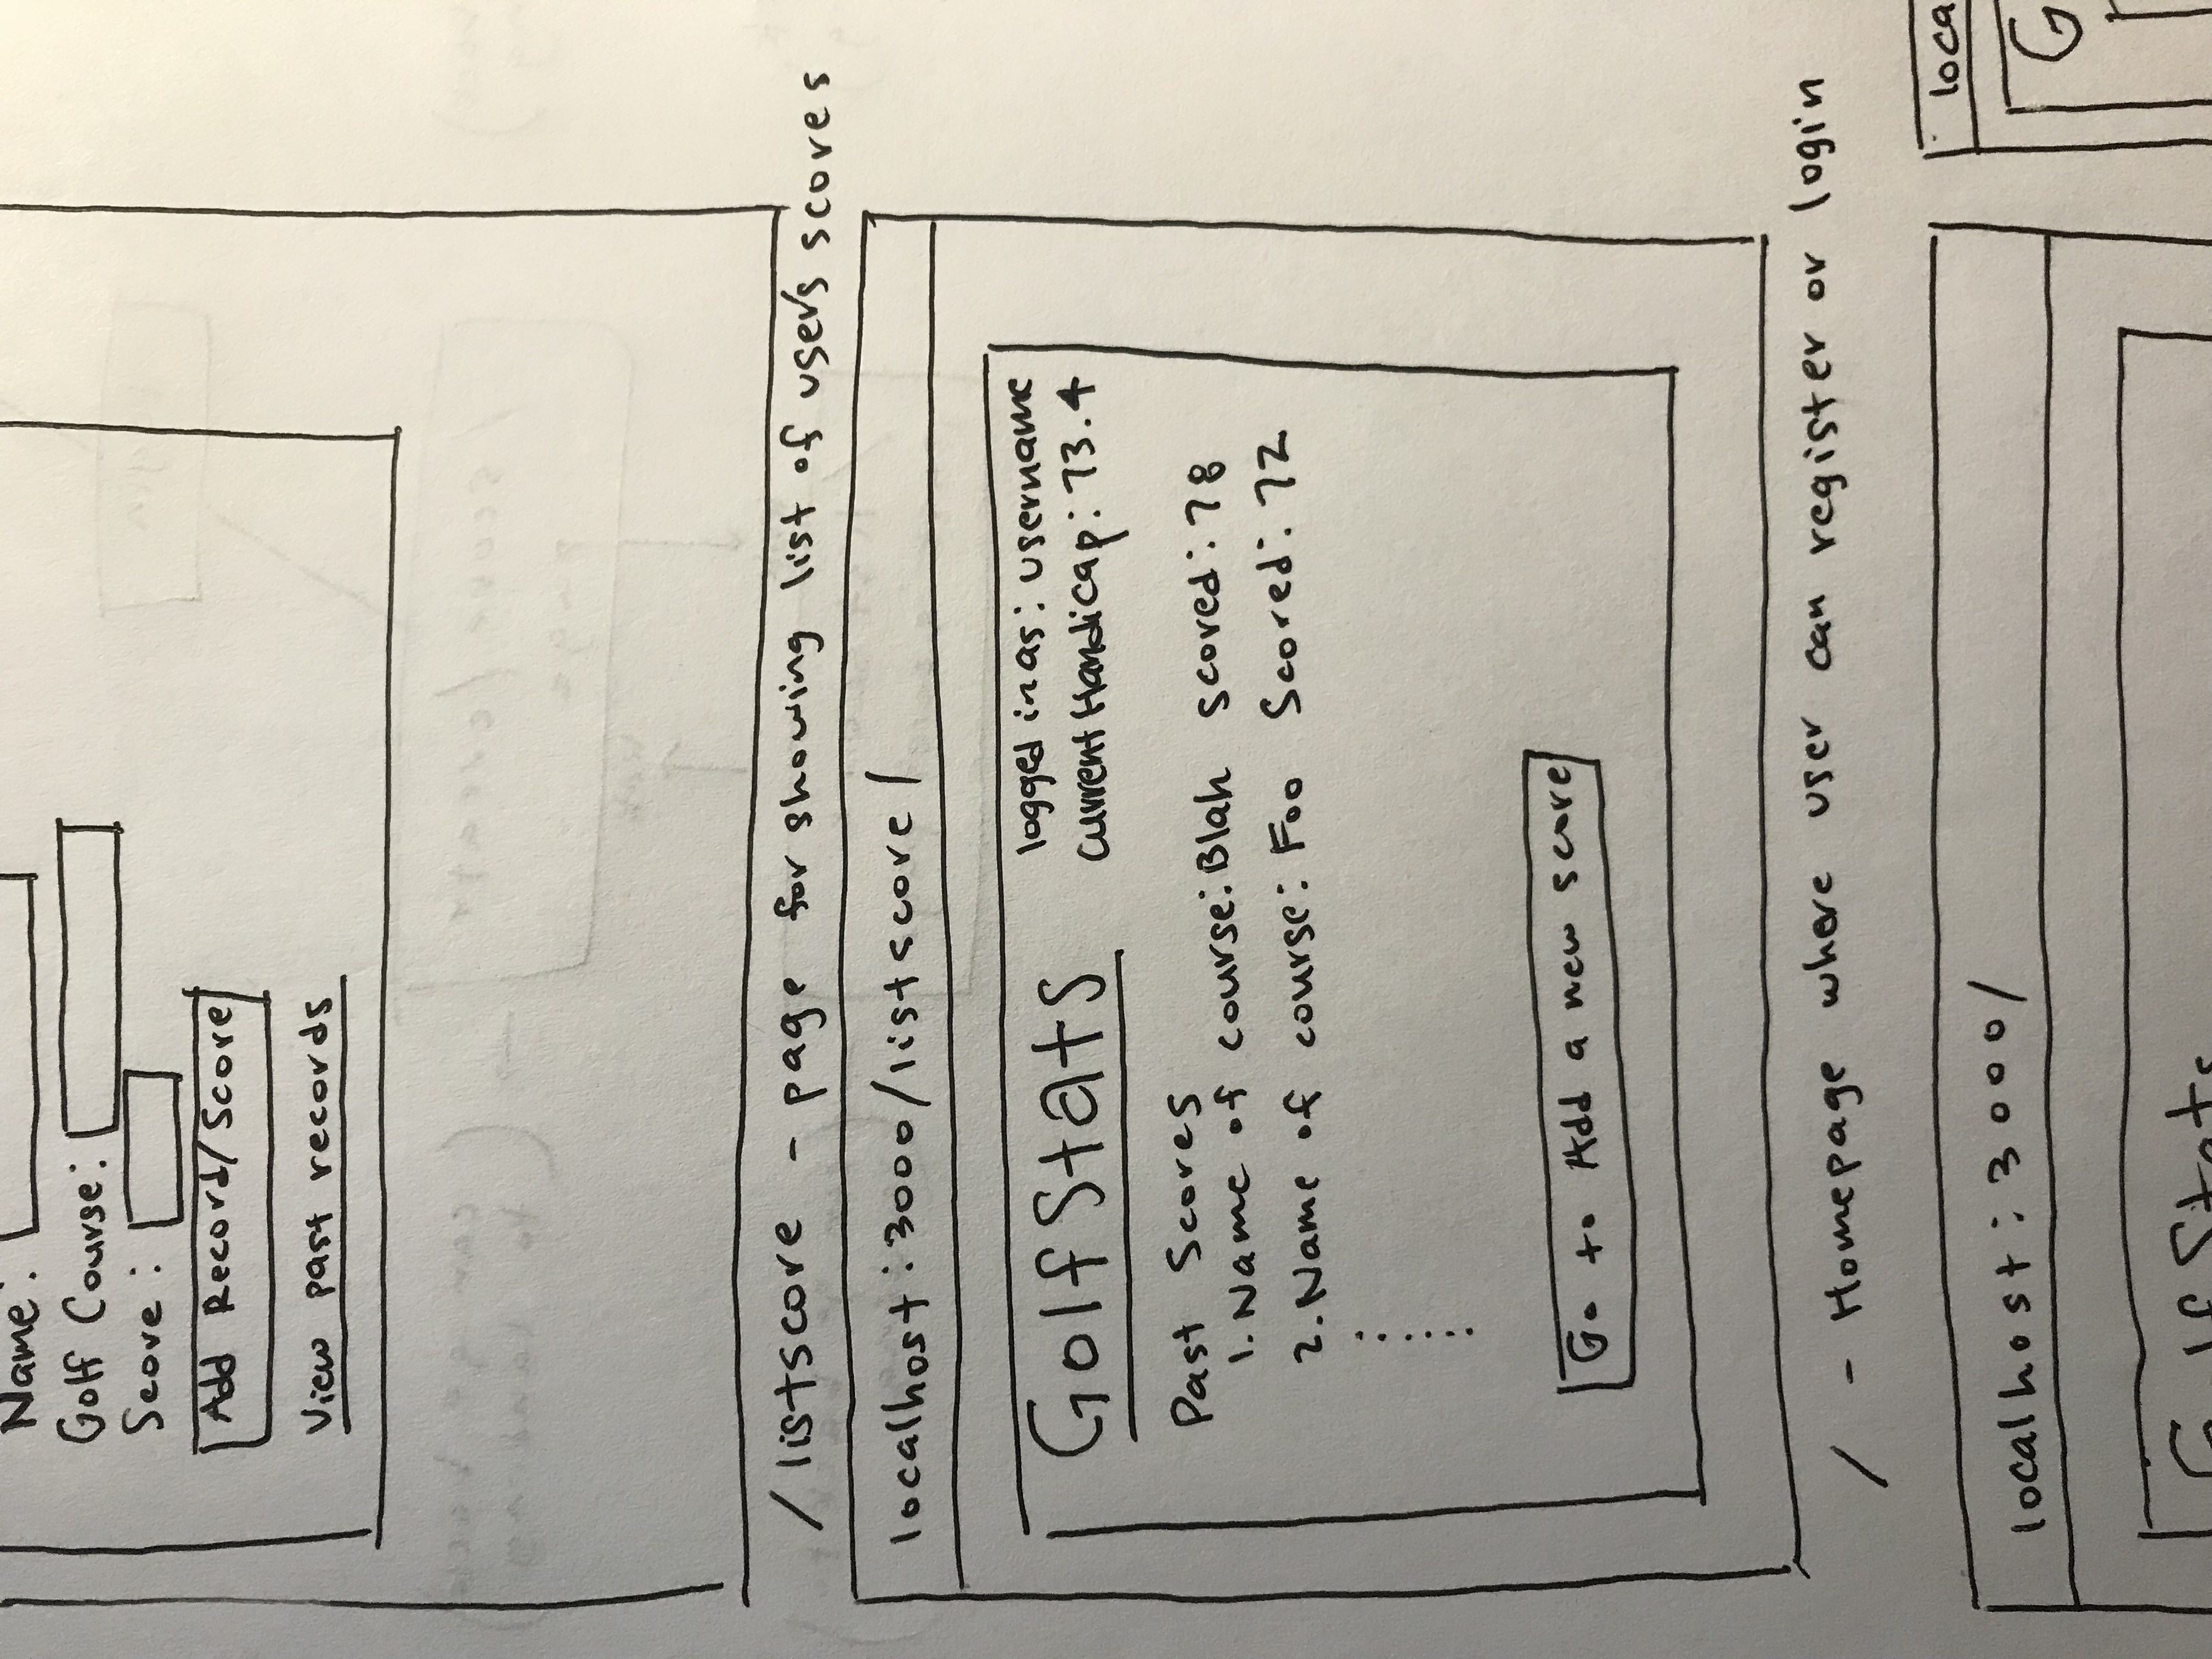 Name:
Golf Course:
Score:
Add Record/Score
View past records
/listscore - page for showing list of user's scores
localhost:3000/listscore/
GolfStats
logged in as: username
Current Handicap: 73.4
Past Scores
1. Name of course: Blah scored: 78
2. Name of course: Foo Scored: 72
Go to Add a new score
/ - Homepage where user can register or login
localhost:3000/
loca
GolfStats
G